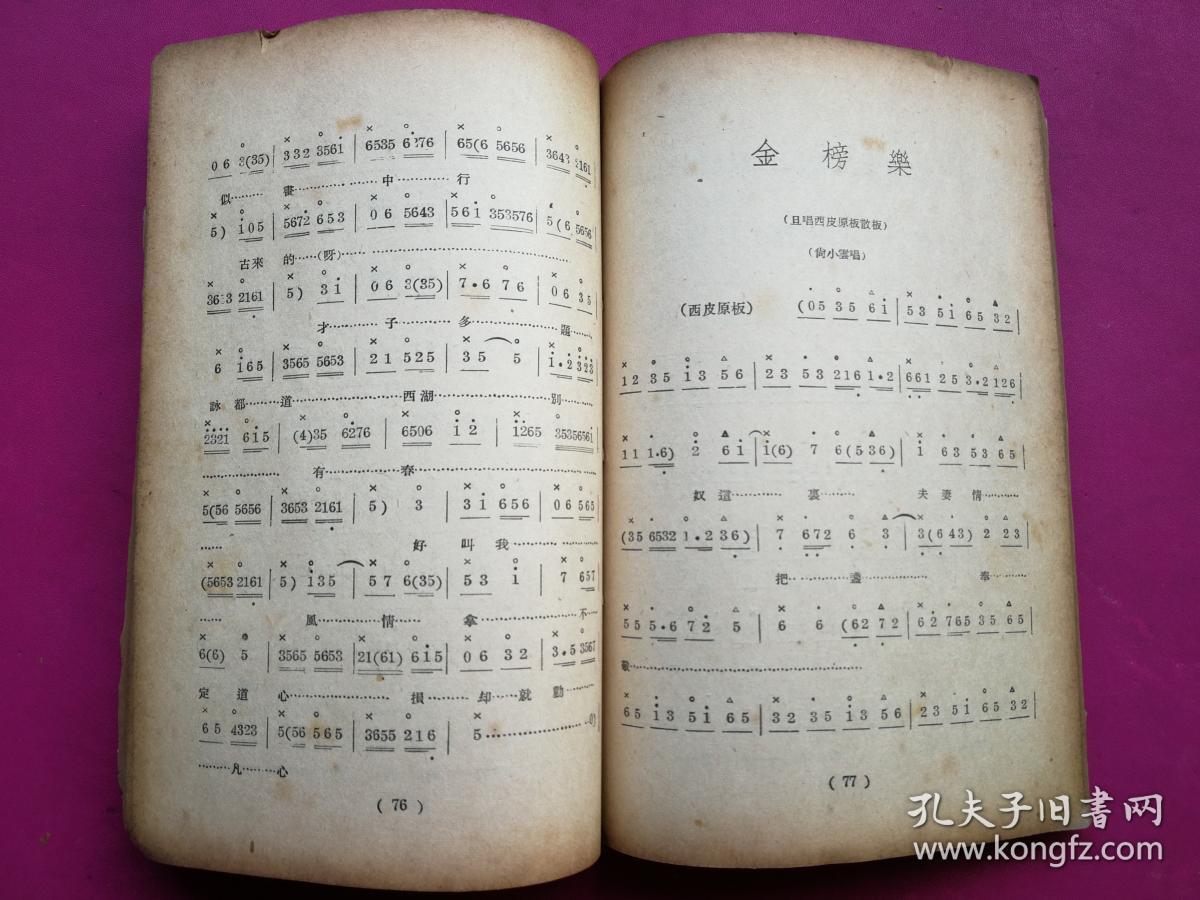 0 6 3(35) | 3 3 2 3561 | 6535 6276 | 65(6 5656 | 3643 2161
似………畫………中………行
5) 105 | 5672 653 | 06 5643 | 561 353576 | 5(6 5656
古來的……(呀)
3653 2161 | 5) 31 | 06 3(35) | 7·6 76 | 06 35
才……子……多……題
6 165 | 3565 5653 | 21 525 | 35 5 | 1·2323
詠都……道……西湖……別
2321 615 | (4)35 6276 | 6506 12 | 1265 35356561
有……春
5(56 5656 | 3653 2161 | 5) 3 | 31 656 | 06 565
好叫我
(5653 2161 | 5) 135 | 57 6(35) | 53 1 | 7 657
風……情……拿……不
6(6) 5 | 3565 5653 | 21(61) 615 | 06 32 | 3·5 3567
定道心……損……却……就……動
65 4323 | 5(56 565 | 3655 216 | 5………0)
………凡………心
( 76 )
金榜樂
(旦唱西皮原板散板)
(尙小雲唱)
(西皮原板) (05 35 61 | 53 51 65 32 |
12 35 13 56 | 23 53 216 1·2 | 661 25 3·2 126 |
11 1·6) 2 61 | 1(6) 7 6(536) | 1 63 53 65 |
奴這……裏……夫妻情
(35 6532 1·2 36) | 7 672 6 3 | 3(643) 2 23 |
把盞……奉
55 5·6 72 5 | 6 6 (62 72 | 62 765 35 65 |
敬
65 13 51 65 | 32 35 13 56 | 23 51 65 32 |
( 77 )
孔夫子旧书网
www.kongfz.com